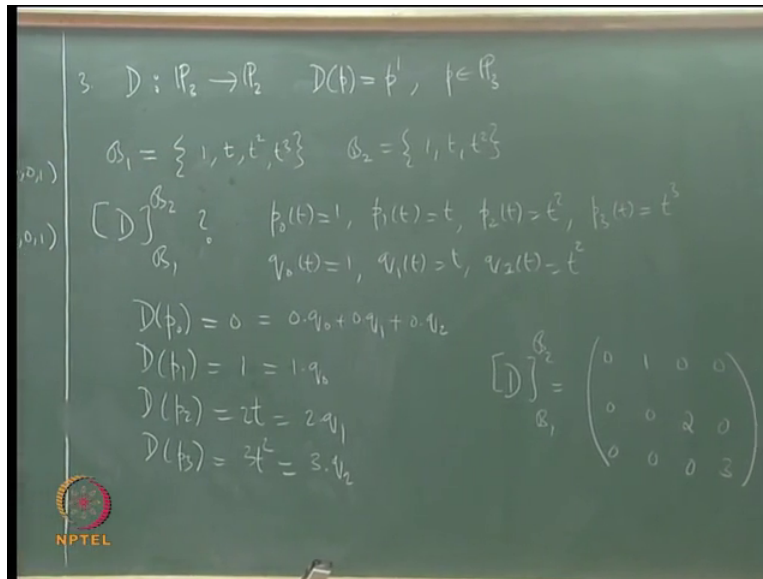 3. D : ℙ₃ → ℙ₂ D(p) = p', p ∈ ℙ₃
,0,1)
ℬ₁ = { 1, t, t², t³} ℬ₂ = { 1, t, t²}
,0,1)
[D]_{ℬ₁}^{ℬ₂} ? p₀(t)=1, p₁(t)=t, p₂(t)=t², p₃(t)=t³
q₀(t)=1, q₁(t)=t, q₂(t)=t²
D(p₀) = 0 = 0.q₀+0.q₁+0.q₂
D(p₁) = 1 = 1.q₀
D(p₂) = 2t = 2.q₁
D(p₃) = 3t² = 3.q₂
[D]_{ℬ₁}^{ℬ₂} = ( 0 1 0 0
0 0 2 0
0 0 0 3 )
NPTEL